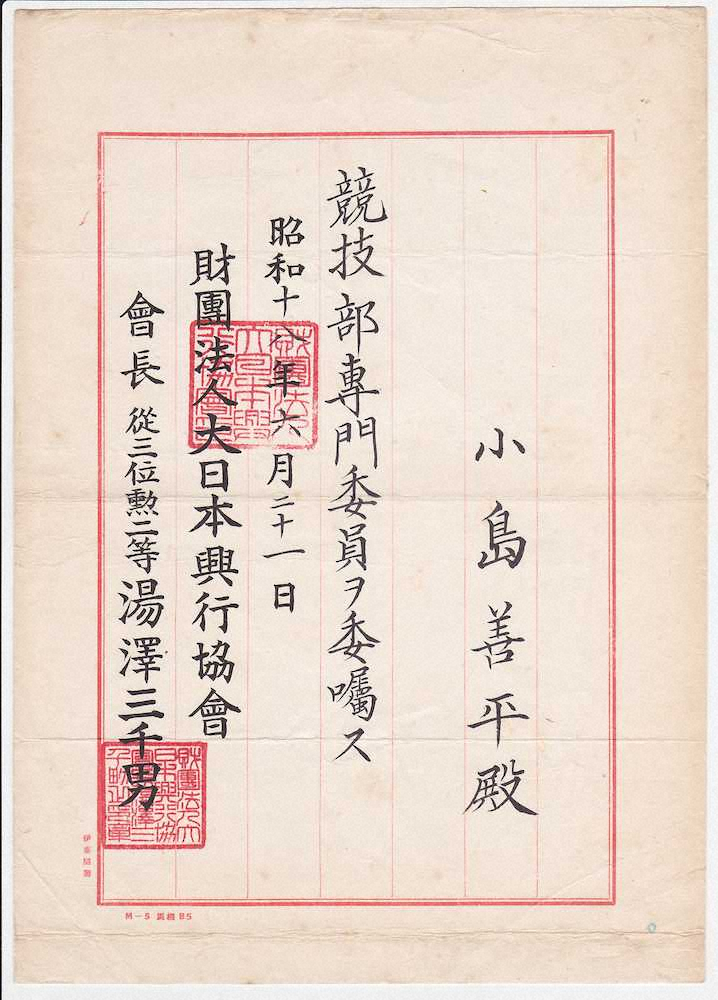 小島善平殿
競技部專門委員ヲ委囑ス
昭和十八年六月二十一日
財團法人大日本興行協會
會長 從三位勲二等湯澤三千男
M－5 規格 B5